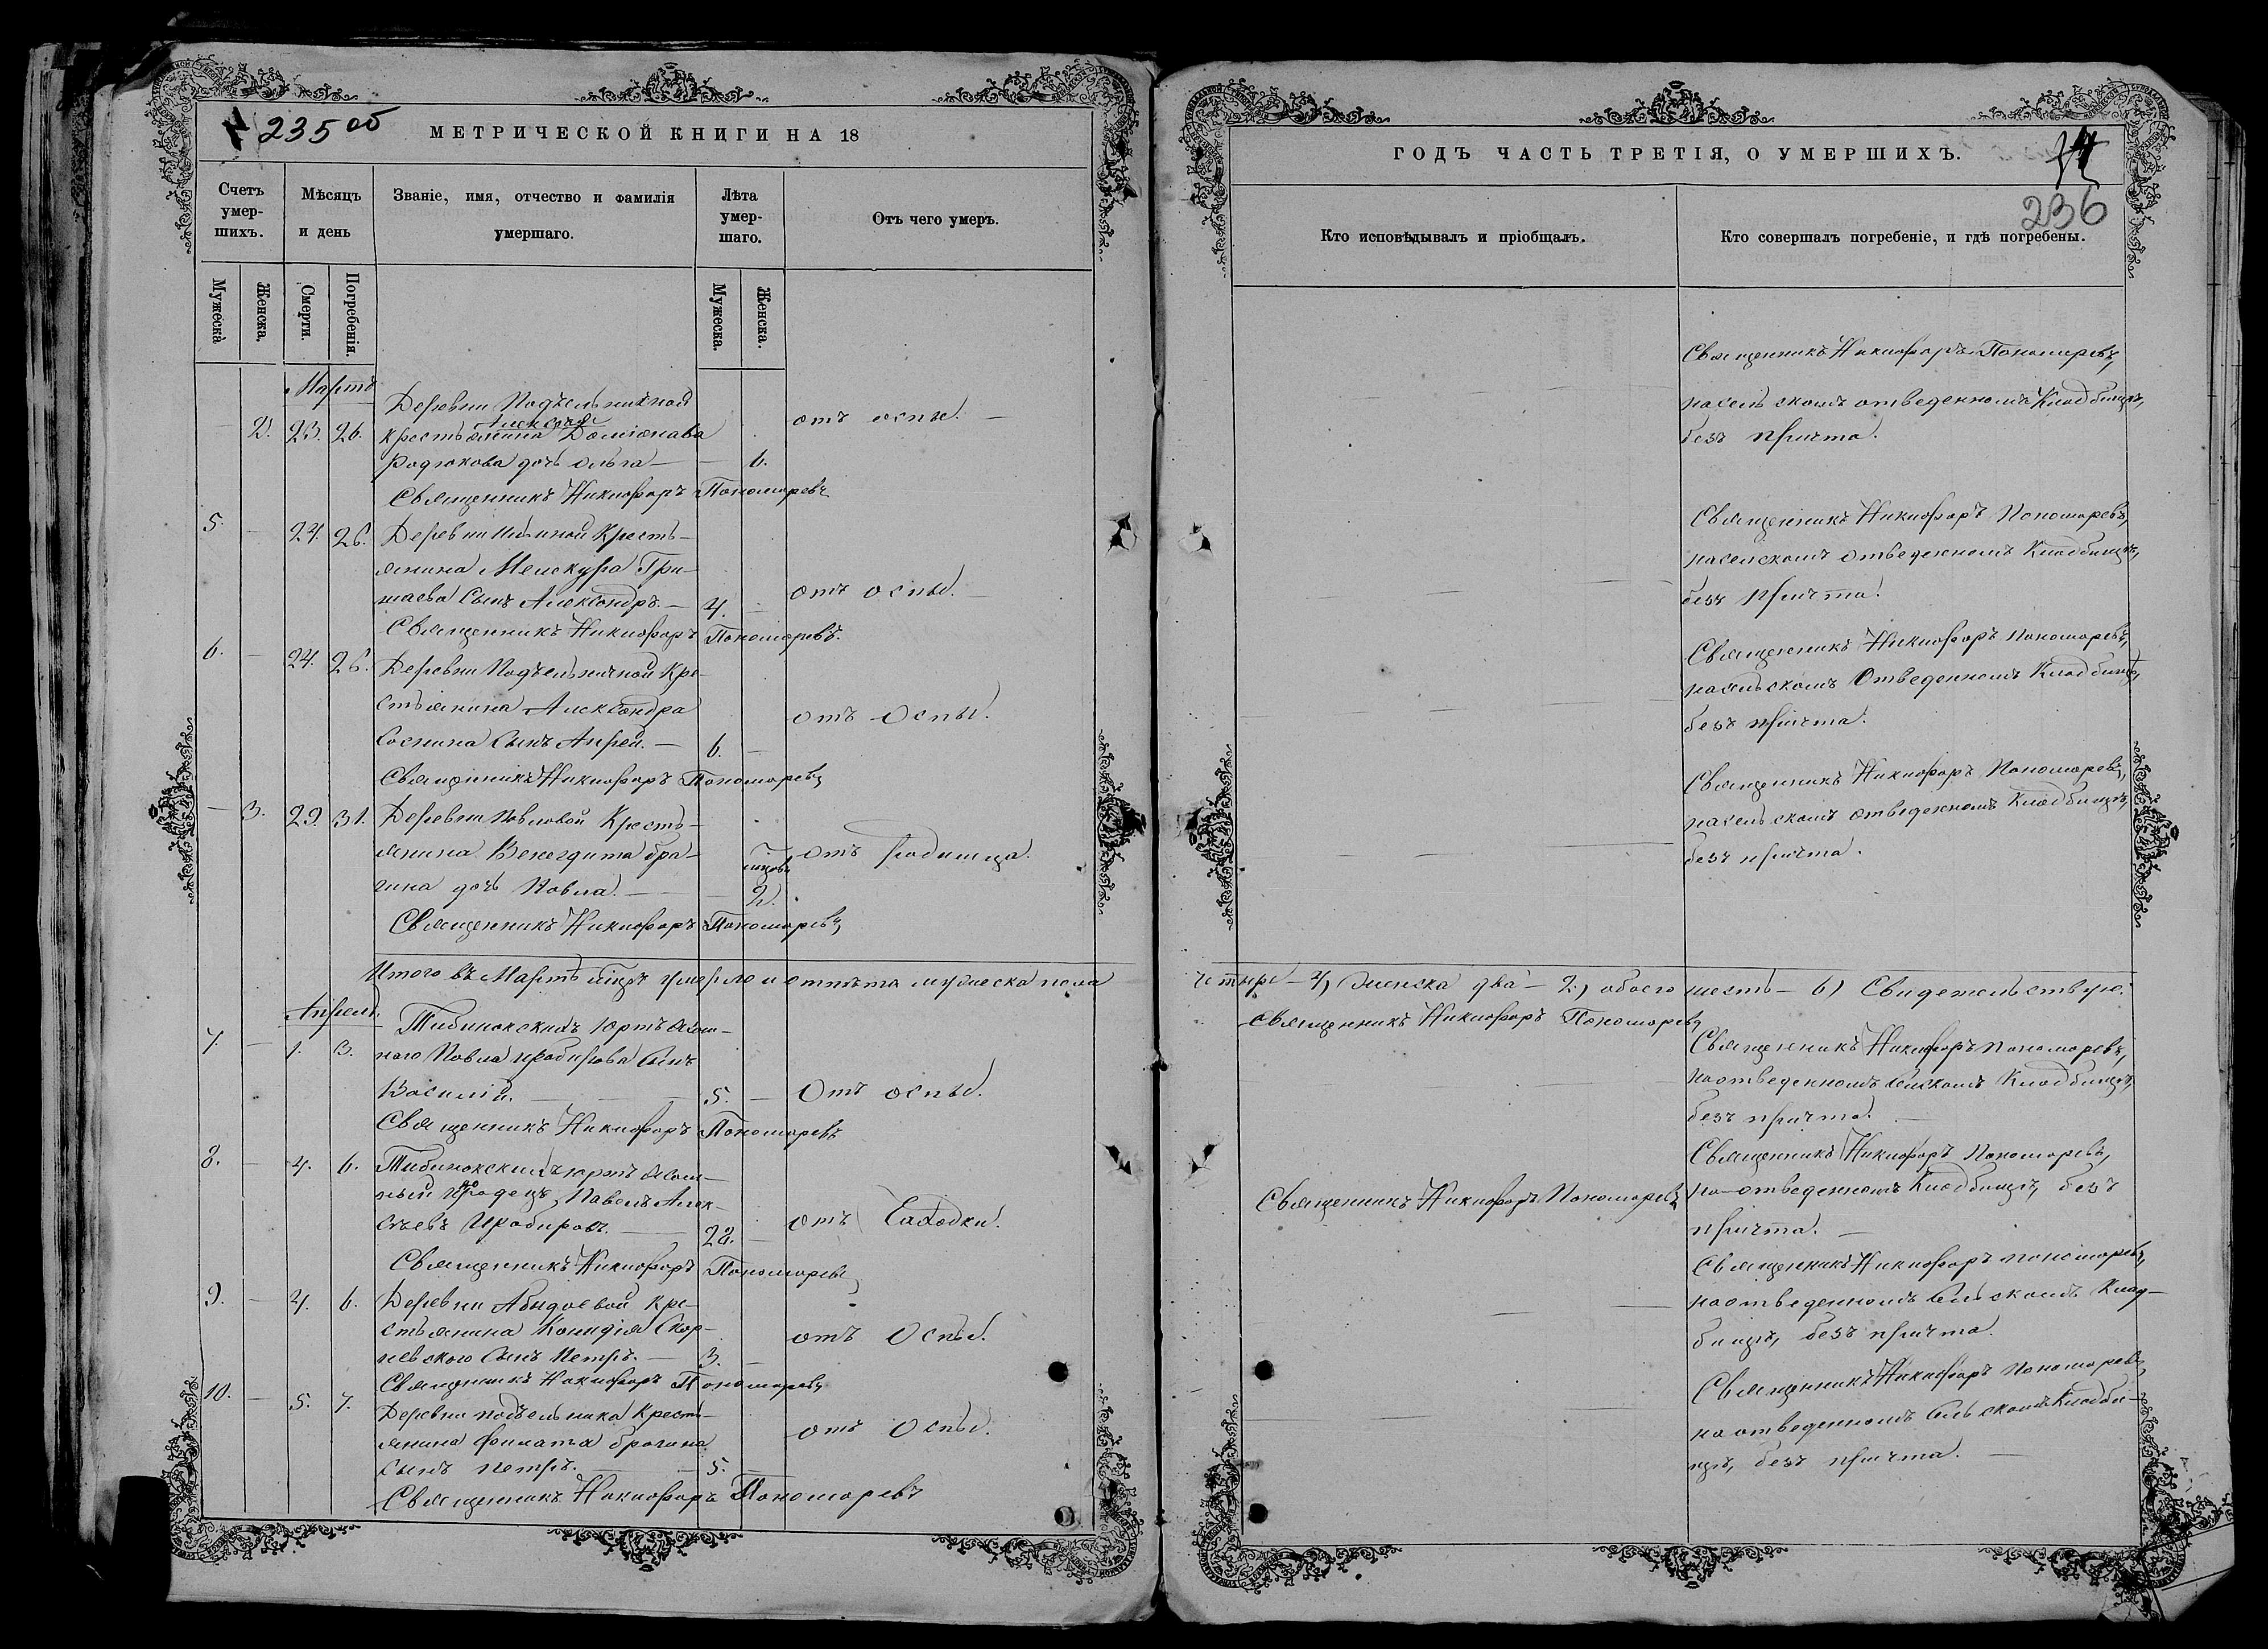 235 об
МЕТРИЧЕСКОЙ КНИГИ НА 18
Счетъ умер-шихъ.
Мѣсяцъ и день
Званіе, имя, отчество и фамилія умершаго.
Лѣта умер-шаго.
Отъ чего умеръ.
Мужеска
Женска.
Смерти.
Погребенія.
Мужеска.
Женска.
Мартъ
Деревни Подъельничной
Алексѣя
2. 23. 26. крестьянина Домiонова отъ оспы.
Родюкова дочь Ольга — 6.
Священникъ Никифоръ Пономаревъ
5. 24. 26. Деревни Кресть-
янина Гри-
шаева сынъ Александръ. — 4. отъ оспы.
Священникъ Никифоръ Пономаревъ.
6. 24. 26. Деревни Подъельничной Кре-
стьянина Александра отъ Оспы.
Соснина сынъ Андрей. — 6.
Священникъ Никифоръ Пономаревъ
3. 29. 31. Деревни Павловой Кресть-
янина Венедикта Бра- отъ родимца.
гина дочь Павла. — 2.
Священникъ Никифоръ Пономаревъ
Итого въ Мартѣ мцѣ умерло и отпѣто мужеска пола
Апрель.
Тибинокскихъ Юртъ Ясаш-
7. 1. 3. наго Павла Ирабирова сынъ
Василій. — 5. — Отъ оспы.
Священникъ Никифоръ Пономаревъ
8. 4. 6. Тибинокскихъ юртъ Ясаш-
ный Павелъ Алек-
сѣевъ Ирабировъ. — 22. отъ
Священникъ Никифоръ Пономаревъ
9. 4. 6. Деревни Абыдоевой Кре-
стьянина Скор- отъ Оспы.
невского сынъ Петръ. — 3.
Священникъ Никифоръ Пономаревъ
10. 5. 7. Деревни подъельника Кресть-
янина Филата Брагина отъ Оспы.
сынъ Петръ. — 5.
Священникъ Никифоръ Пономаревъ
ГОДЪ ЧАСТЬ ТРЕТІЯ, О УМЕРШИХЪ.
236
Кто исповѣдывалъ и пріобщалъ.
Кто совершалъ погребеніе, и гдѣ погребены.
Священникъ Никифоръ Пономаревъ,
насельскомъ отведенномъ Кладбищѣ,
безъ причта.
Священникъ Никифоръ Пономаревъ,
насельскомъ отведенномъ Кладбищѣ,
безъ причта.
Священникъ Никифоръ Пономаревъ,
насельскомъ Отведенномъ Кладбищѣ,
безъ причта.
Священникъ Никифоръ Пономаревъ,
насельскомъ отведенномъ Кладбищѣ,
безъ причта.
четыре — 4) женска два — 2) обоего шесть — 6) Свидетельствую:
Священникъ Никифоръ Пономаревъ
Священникъ Никифоръ Пономаревъ,
на отведенномъ Сельскомъ Кладбищѣ,
безъ причта.
Священникъ Никифоръ Пономаревъ,
Священникъ Никифоръ Пономаревъ на отведенномъ Кладбищѣ, безъ
причта. —
Священникъ Никифоръ Пономаревъ,
на отведенномъ Сельскомъ Клад-
бищѣ, безъ причта.
Священникъ Никифоръ Пономаревъ
на отведенномъ Сельскомъ Кладби-
щѣ, безъ причта. —